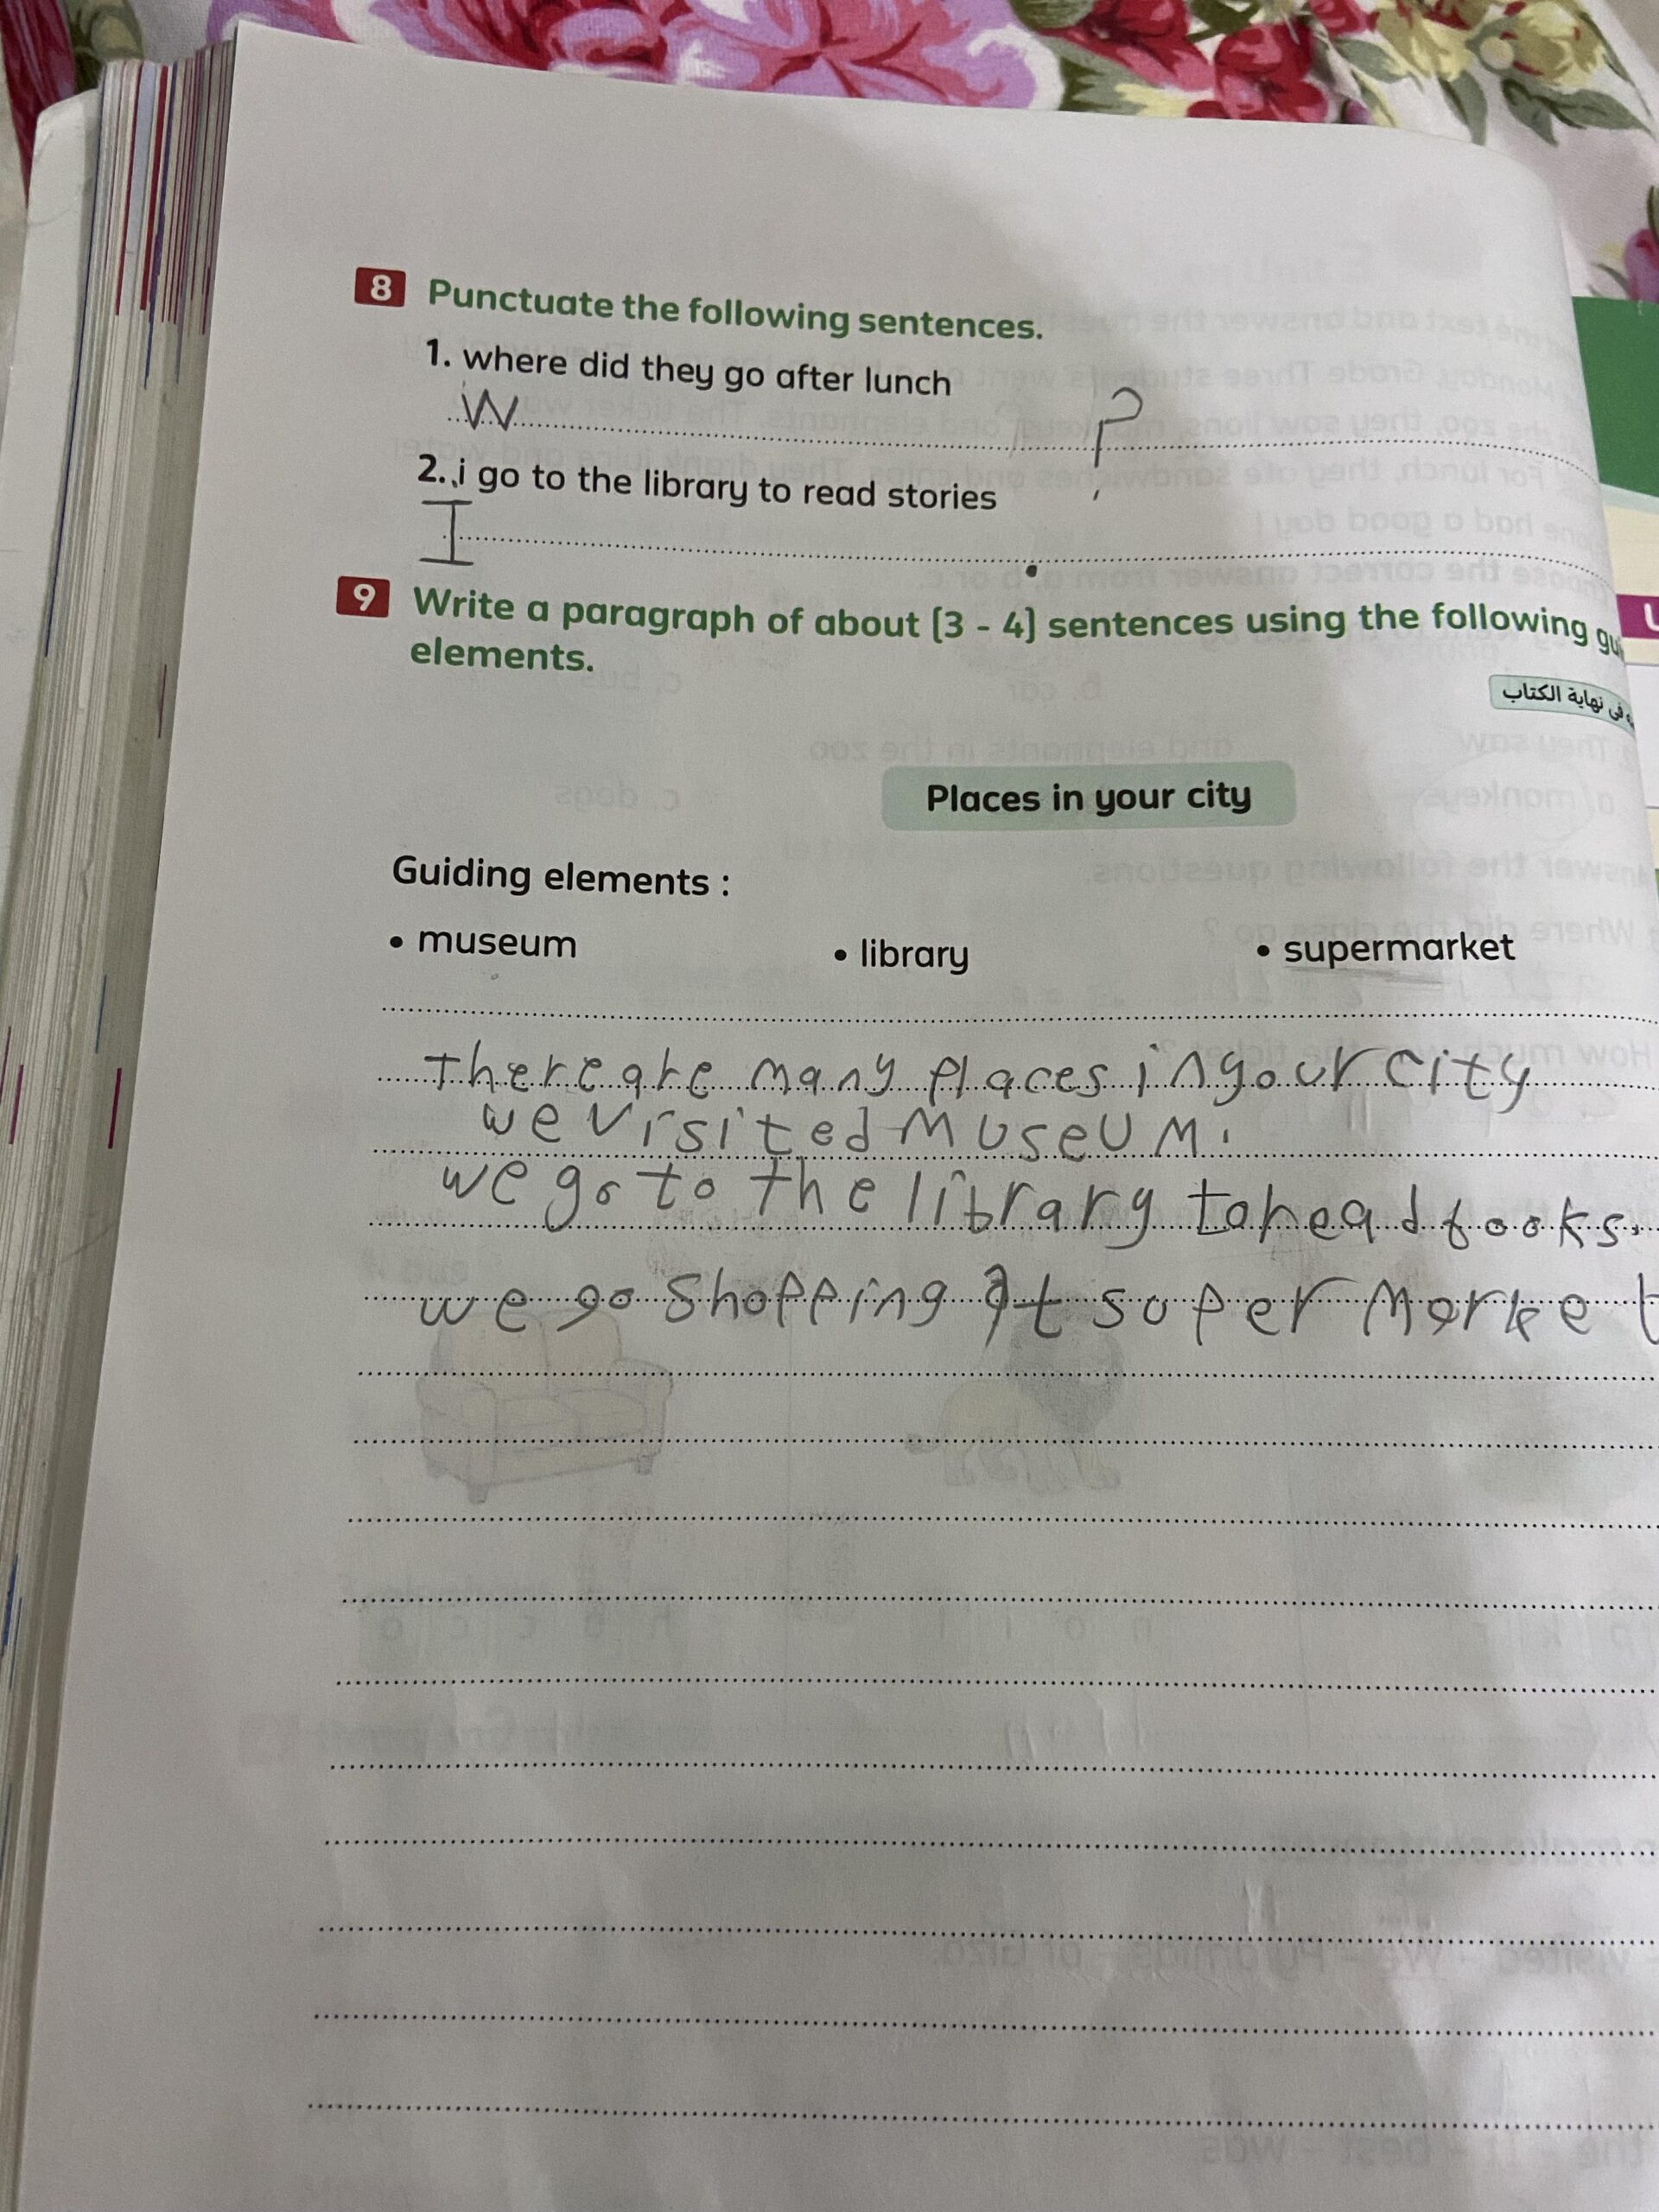 8 Punctuate the following sentences.
1. where did they go after lunch
W ?
2. i go to the library to read stories
I .
9 Write a paragraph of about (3 - 4) sentences using the following
elements.
فى نهاية الكتاب
Places in your city
Guiding elements :
• museum • library • supermarket
There are many places in your city
we visited museum.
we go to the library to read books.
we go shopping at super market